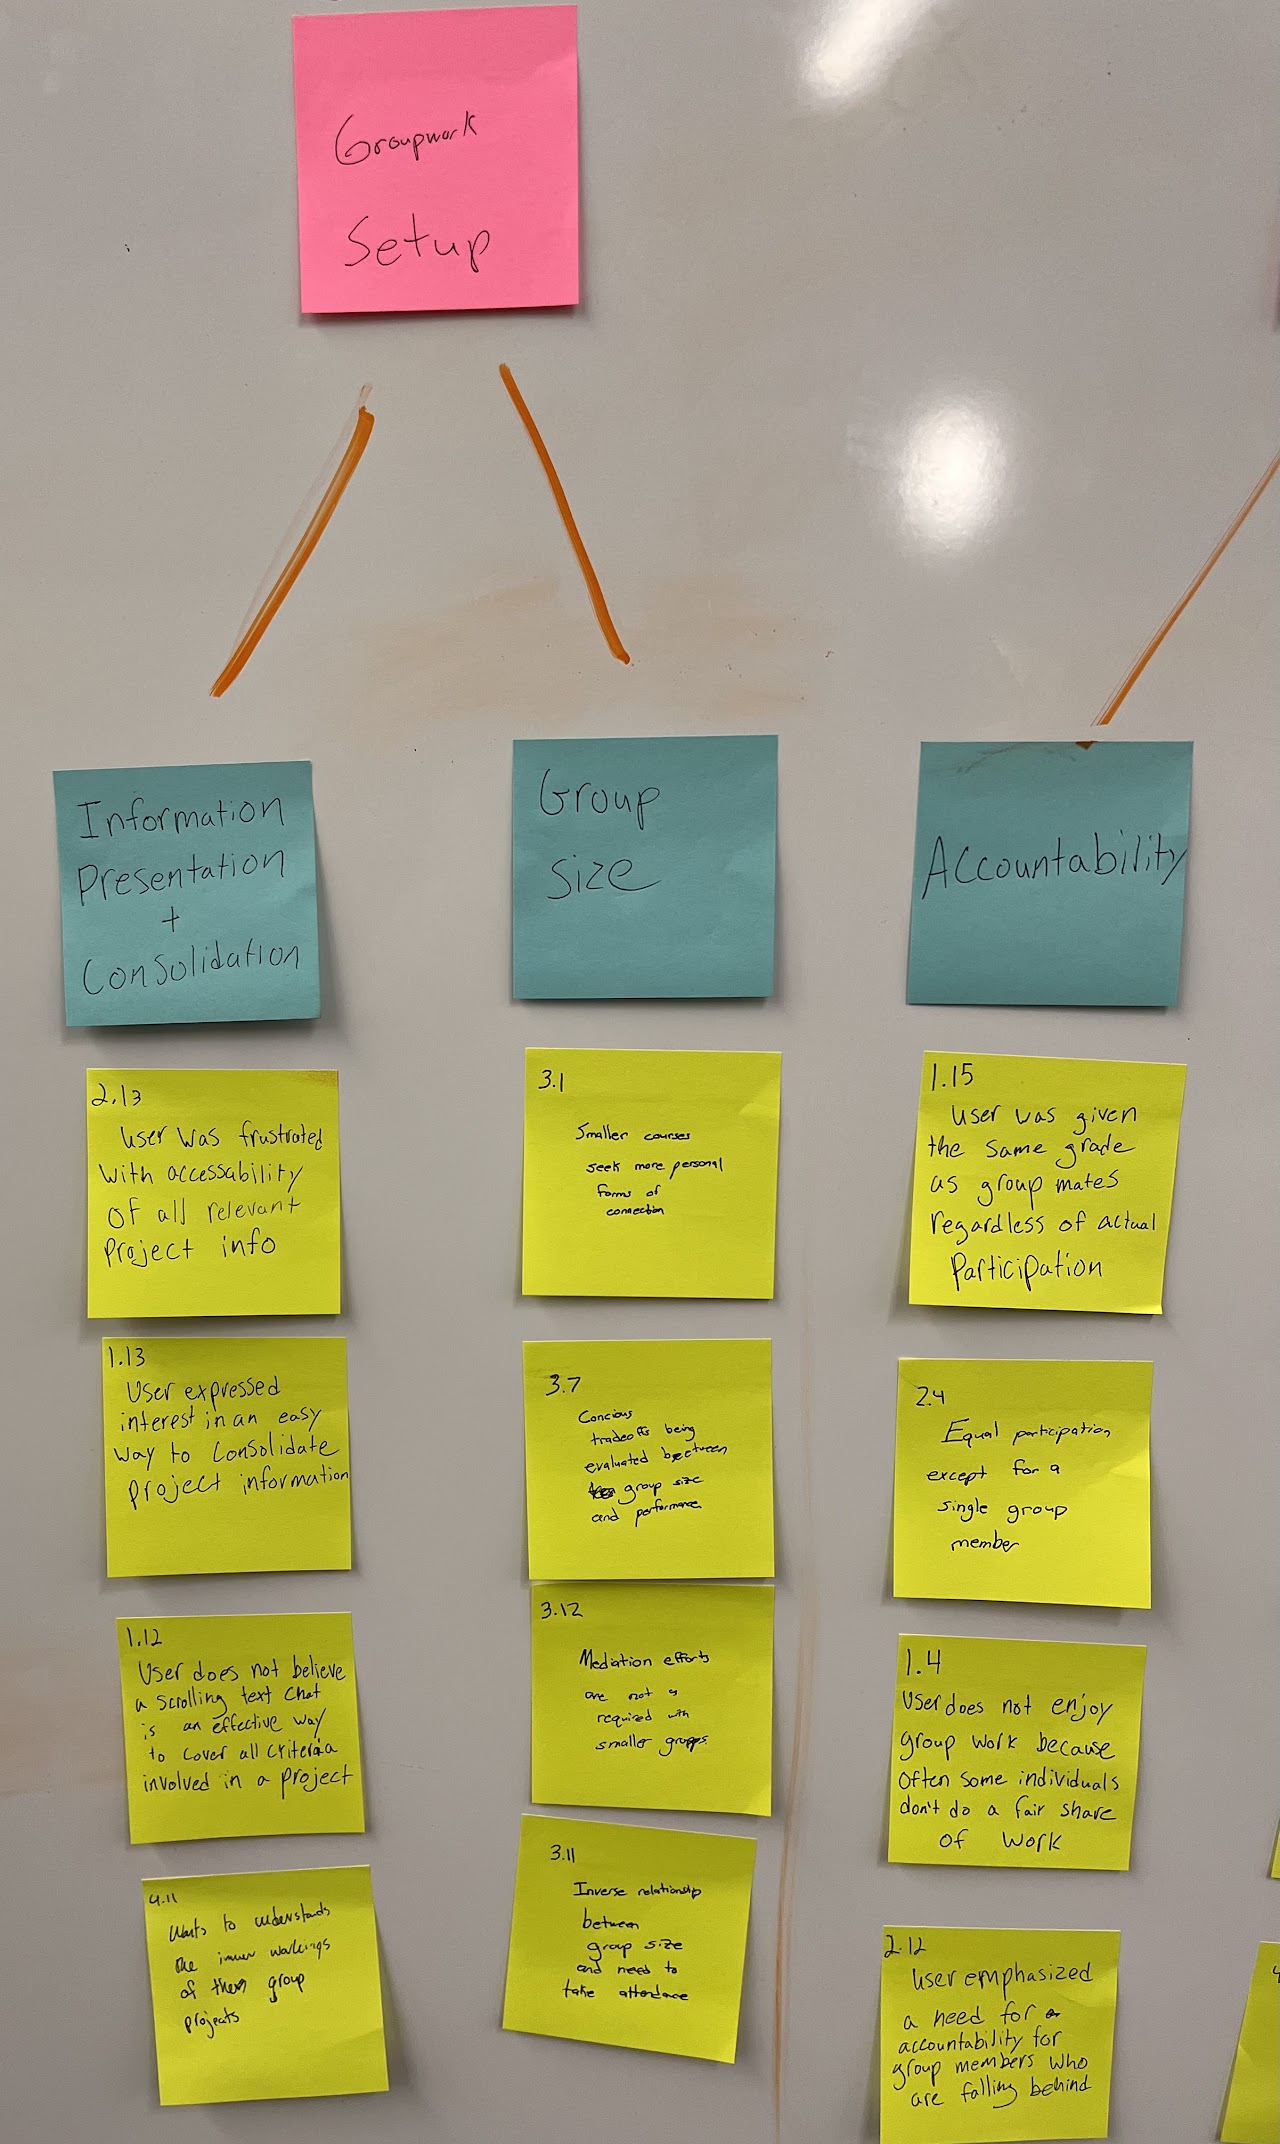 Groupwork
Setup
Information
Presentation
+
Consolidation
2.13
User was frustrated
with accessability
of all relevant
project info
1.13
User expressed
interest in an easy
way to consolidate
project information
1.12
User does not believe
a scrolling text chat
is an effective way
to cover all criteria
involved in a project
4.11
Wants to understands
the inner workings
of them group
projects
Group
size
3.1
Smaller courses
seek more personal
forms of
connection
3.7
Concious
tradeoffs being
evaluated between
group size
and performance
3.12
Mediation efforts
are not as
required with
smaller groups.
3.11
Inverse relationship
between
group size
and need to
take attendace
Accountability
1.15
User was given
the same grade
as group mates
regardless of actual
participation
2.4
Equal participation
except for a
single group
member
1.4
User does not enjoy
group work because
often some individuals
don't do a fair share
of work
2.12
User emphasized
a need for
accountability for
group members who
are falling behind